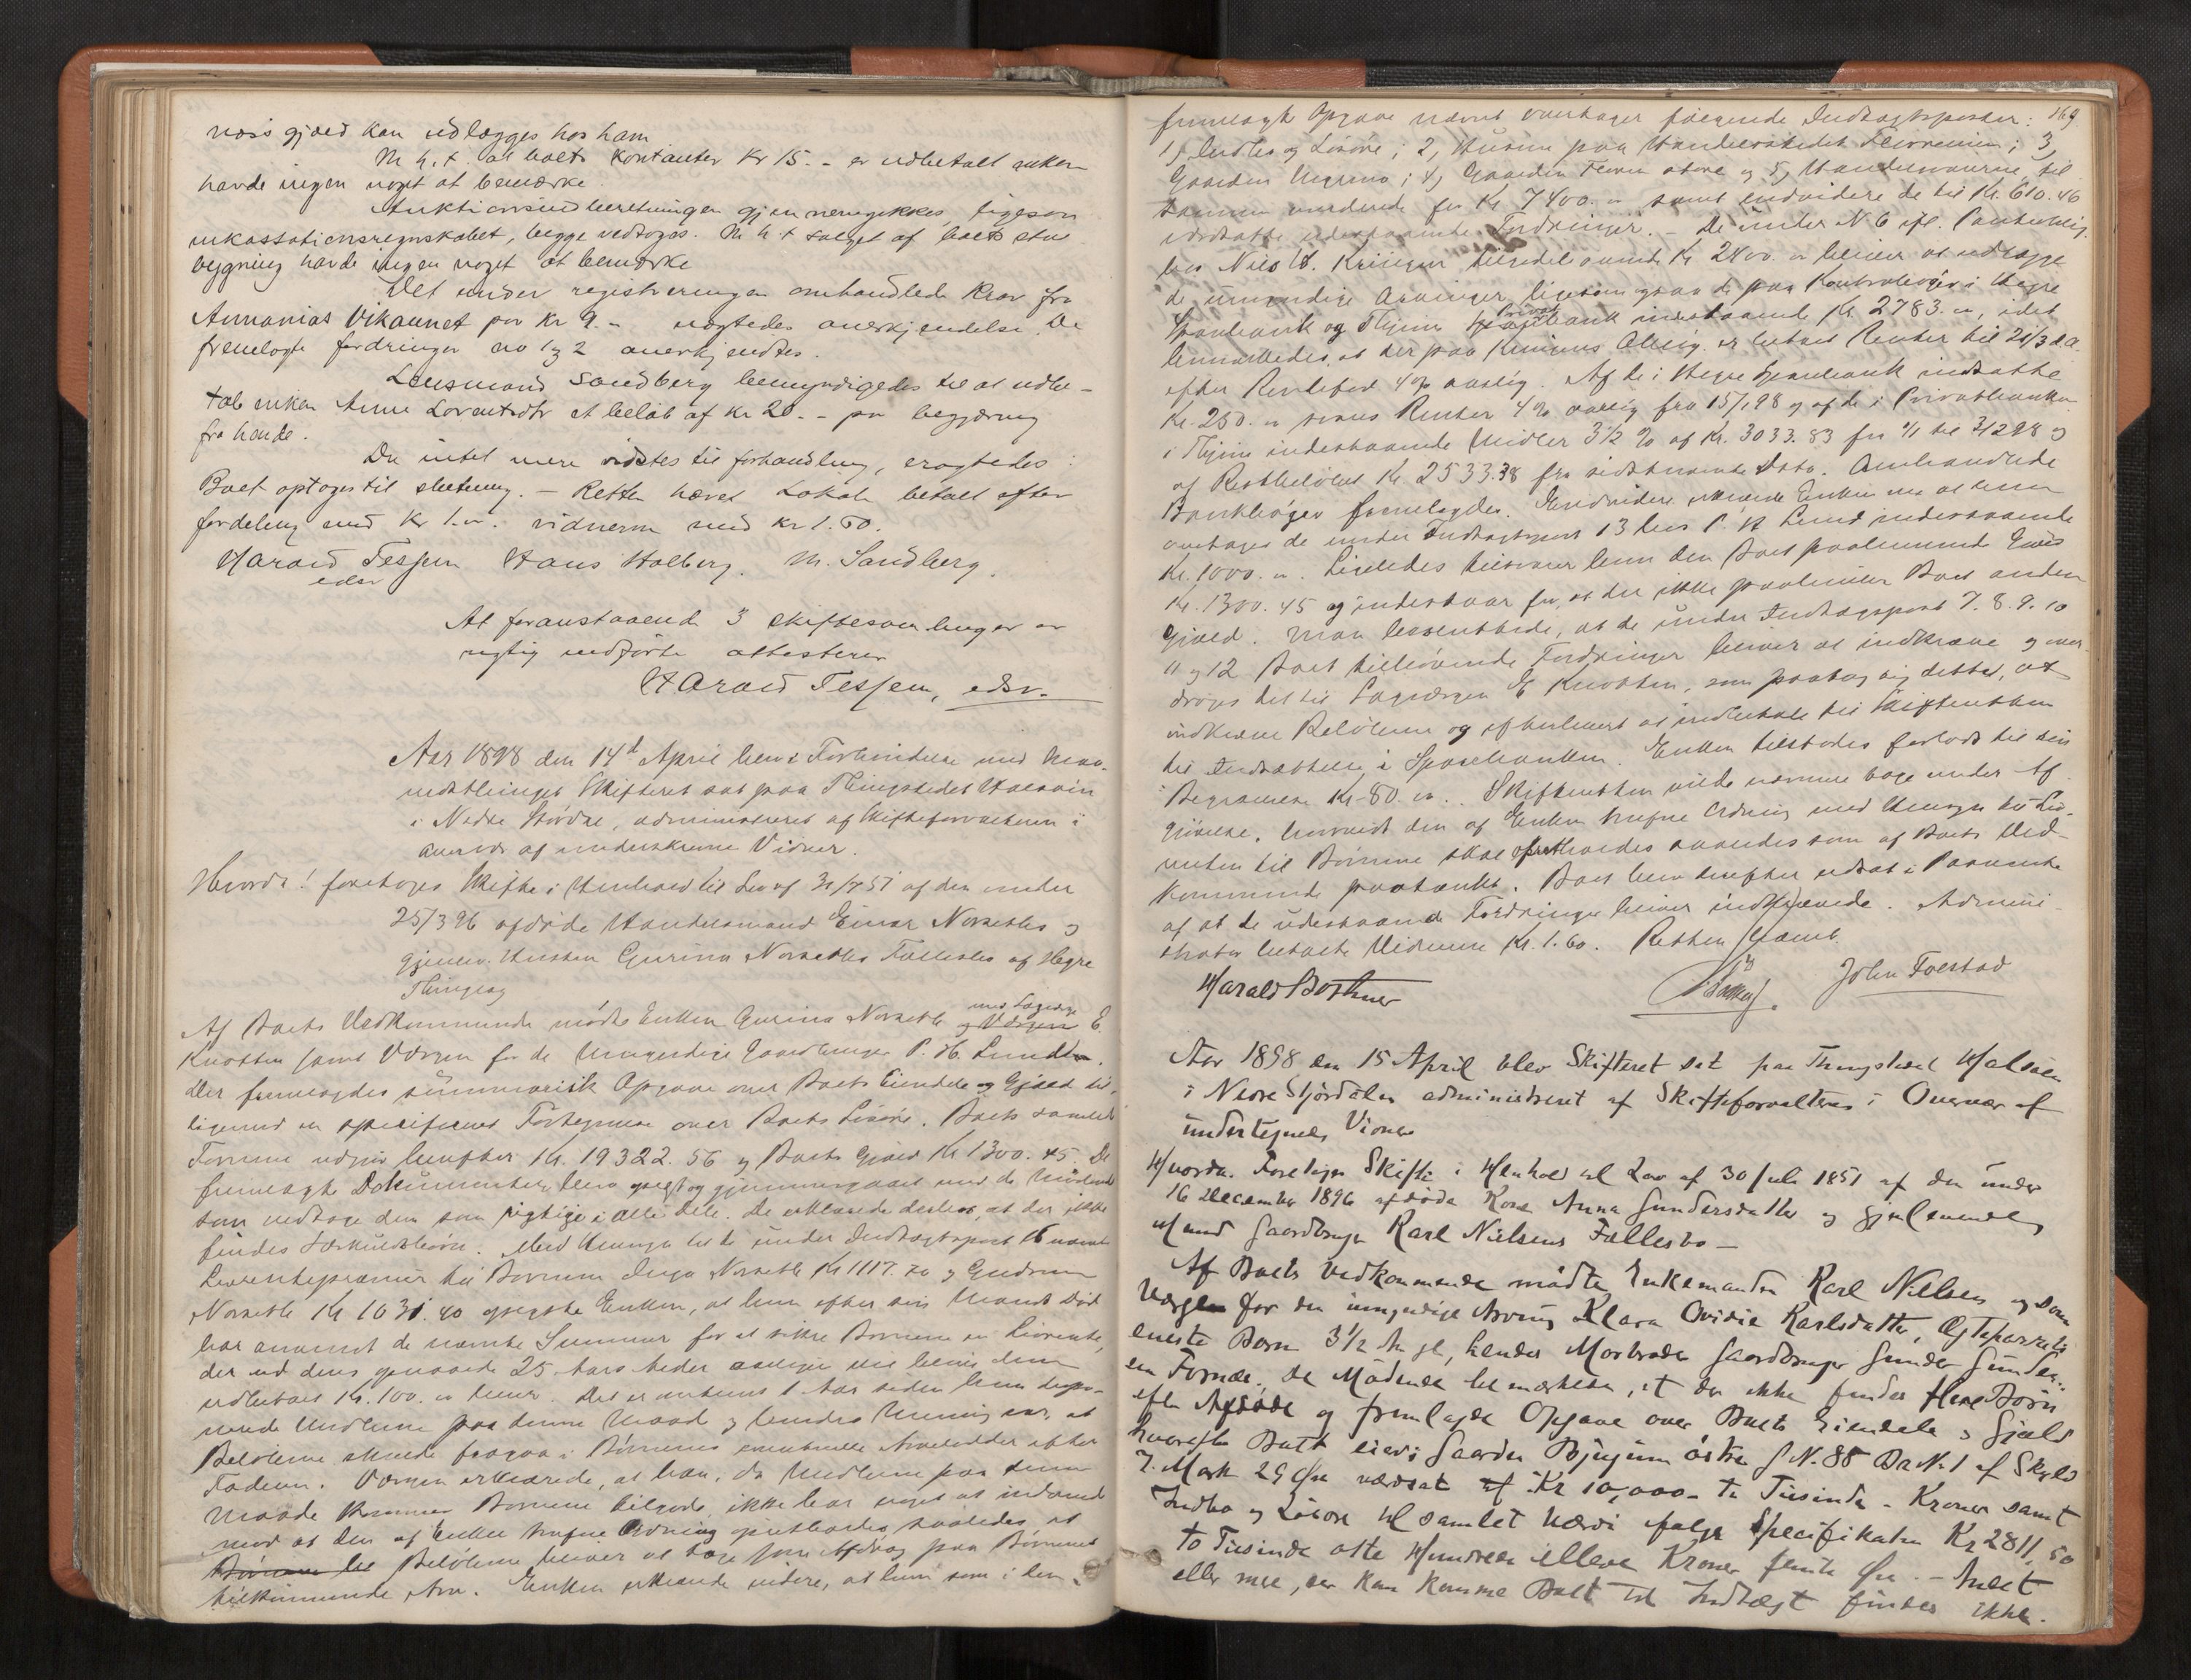 næs's gjæld kan udlægges hos ham
M. h. t. at boets kontanter Kr 15.- er udbetalt enken
havde ingen noget at bemærke.
Auktionsindberetningen gjennemgikkes, ligesom
inkassationsregnskabet, begge vedtoges. M. h. t salget af boets stue
bygning havde ingen noget at bemærke
Det under registreringen omhandlede krav fra
Annanias Vikaunet paa Kr 9.- nægtedes anerkjendelse. De
fremlagte fordringer no 1 og 2 anerkjendtes.
Lensmand Sandberg bemyndigedes til at udbe-
tale enken Anne Lorentsdtr et beløb af kr 20.- paa begjæring
fra hende.
Da intet mere vidstes til forhandling, eragtedes:
Boet optages til slutning. - Retten hævet Lokale betalt efter
fordeling med Kr 1.00. vidnerne med kr 1.60.
Harald Tessem Hans Holberg. M. Sandberg.
edsv
At foranstaaende 3 skiftesamlinger er
rigtig indførte attesterer
Harald Tessem, edsv.
Aar 1898 den 14d April blev i Forbindelse med Maa-
nedsthinget Skifteret sat paa Thingstedet Halsøen
i Nedre Stjørdal, administreret af Skifteforvalteren i
Overvær af underskrevne Vidner.
Hvorda! foretoges Skifte i Henhold til Lov af 30/7 51 af den under
25/3 96 afdøde Handelsmand Einar Norsetles og
gjenlev. Hustru Gurine Norsetles Fællesbo af Hegre
Thinglag
Af Boets Vedkommende mødte Enken Gurine Norsetle med Lagværge E.
Knotten samt Værgen for de Umyndige Gaardbruger P. H. Lundkv.
Der fremlagdes summarisk Opgave over Boets Eiendele og Gjæld til-
ligemed en specificeret Fortegnelse over Boets Løsøre. Boets samlede
Formue udgjør herefter Kr. 19322.56 og Boets Gjæld Kr 1300.45. De
fremlagte Dokumenter blev oplæst og gjennemgaaet med de Mødende
som vedtog dem som rigtige i alle Dele. De erklærede derhos, at der ikke
findes Særkuldsbørn. Med Hensyn til de under Indtægtspost 16 nævnte
Livrentepræmier til Børnene Inga Norsetle Kr 1117.70 og Gudrun
Norsetle Kr 1031.40 oplyste Enken, at hun efter sin Mands Død
har anvendt de nævnte Summer for at sikre Børnene en Livrente,
der ved dens opnaaede 25 Aars Alder aarlig vil blive dem
udbetalt Kr. 100.00 hver. Det er omtrent 1 Aar siden hun depo-
nerede Midlerne paa denne Maade og hendes Mening var, at
Beløbene skulde fragaa i Børnenes eventuelle Arvelodder efter
Faderen. Værgen erklærede, at han, da Midlerne paa denne
Maade kommer Børnene tilgode, ikke har noget at indvende
mod at den af Enken trufne Ordning opretholdes saaledes at
Beløbene bliver at tage som Afdrag paa Børnenes
tilkommende Arv. Enken erklærede videre, at hun som i den
169
fremlagte Opgave nævnt overtager følgende Indtægtsposter:
1) Indbo og Løsøre; 2) Husene paa Handelsstedet Fleirenum; 3)
Gaarden Megrunø; 4) Gaarden Floren store og 5) Handelsvarerne, til
Sammen vurderede for Kr 7400.00 samt endvidere de til Kr. 610.46
værdsatte udestaaende Fordringer. - De under N 6 ifl. Panteoblig.
hos Nils A. Kringen tilgodehavende Kr. 2400.00 bliver at udlægge
de umyndige Arvinger, ligesom ogsaa de paa Kontrabøger i Hegre
Sparebank og Thjems Privatbank indestaaende Kr. 2783.00, idet
bemærkedes, at der paa Kringens Oblig. er betalt Renter til 21/3 d.A.
efter Rentefod 4% aarlig. Af de i Hegre Sparebank indsatte
Kr. 250.00 svares Renter 4% aarlig fra 15/1 98 og af de i Privatbanken
i Thjem indestaaende Midler 3½ % af Kr. 3033.83 fra 1/1 til 3/2 98 og
af Restbeløbet Kr 2533.38 fra sidstnævnte Dato. Omhandlede
Bankbøger fremlagdes. Endvidere erklærede Enken sig at ville
overtages de under Indtægtspost 13 hos P. H Lund indestaaende
Kr. 1000.00. Ligeledes tilsvarer hun den Boet paahvilende Gjæld
Kr. 1300.45 og indestaar for, at der ikke paahviler Boet anden
Gjæld. Man besluttede, at de under Indtægtspost 7. 8. 9. 10
11 og 12 Boet tilhørende Fordringer bliver at indkræve og over
drages det til Lagværgen E Knotten, som paatog sig dette, at
indkræve Beløbene og efterhvert at indbetale til Skifteretten
til Indsættelse i Sparebanken. Enken tilstodes forlods til sin
Begravelse Kr. 80.00. Skifteretten vilde nærmere tage under Af-
gjørelse, hvorvidt den af Enken trufne Ordning med Hensyn til Liv-
renten til Børnene skal opretholdes saaledes som af Boets Ved-
kommende paatænkt. Boet blev derefter udsat i Paavente
af at de udestaaende Fordringer bliver indkrævede. Admini-
strator betalte Vidnerne Kr. 1.60. Retten hævet.
Harald Bothner
John Foerstad
Aar 1898 den 15 April blev Skifteret sat paa Thingstedet Halsøen
i Nedre Stjørdalen administreret af Skifteforvalteren i Overvær af
undertegnede Vidner
Hvorda. Foretoges Skifte i Henhold til Lov af 30 Juli 1851 af den under
16 December 1896 afdøde Kone Anna Gundersdatter og gjenlevende
Mand Gaardbruger Karl Nielsens Fællesbo -
Af Boets Vedkommende mødte Enkemanden Karl Nielsen og som
Værge for den umyndige Arving Klara Ovidie Karlsdatter, Ægteparrets
eneste Barn 3½ Aar gl, hendes Morbroder Gaardbruger Gunder Gunder-
sen Fornæs. De Mødende bemærkede, at der ikke findes flere Børn
efter Afdøde og fremlagde Opgave over Boets Eiendele og Gjæld
hvorefter Boet eier: Gaarden Bjugum østre G N. 88 Br N. 1 af Skyld
7. Mark 29 Øre værdsat til Kr 10,000 - ti Tusinde - Kroner samt
Indbo og Løsøre til samlet Værdi ifølge Specifikation Kr 2811,50
to Tusinde otte Hundrede elleve Kroner femti Øre - Andet
eller mere, der kan komme Boet til Indtægt findes ikke.